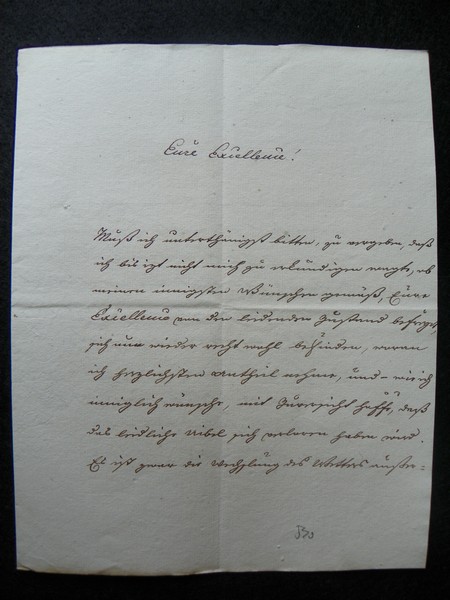 Eure Excellence!
Muß ich unterthänigst bitten, zu vergeben, daß
ich bis izt nicht mich zu erkündigen wagte, ob
meinen innigsten Wünschen gemäß, Eure
Excellence von den leidenden Zustand befreyt,
sich nun wieder recht wohl befinden, woran
ich herzlichsten Antheil nehme, und – wie ich
inniglich wünsche, mit Zuversicht hoffe, daß
das leidliche Uibel sich verloren haben wird.
Es ist zwar die Wechslung des Wetters außer=